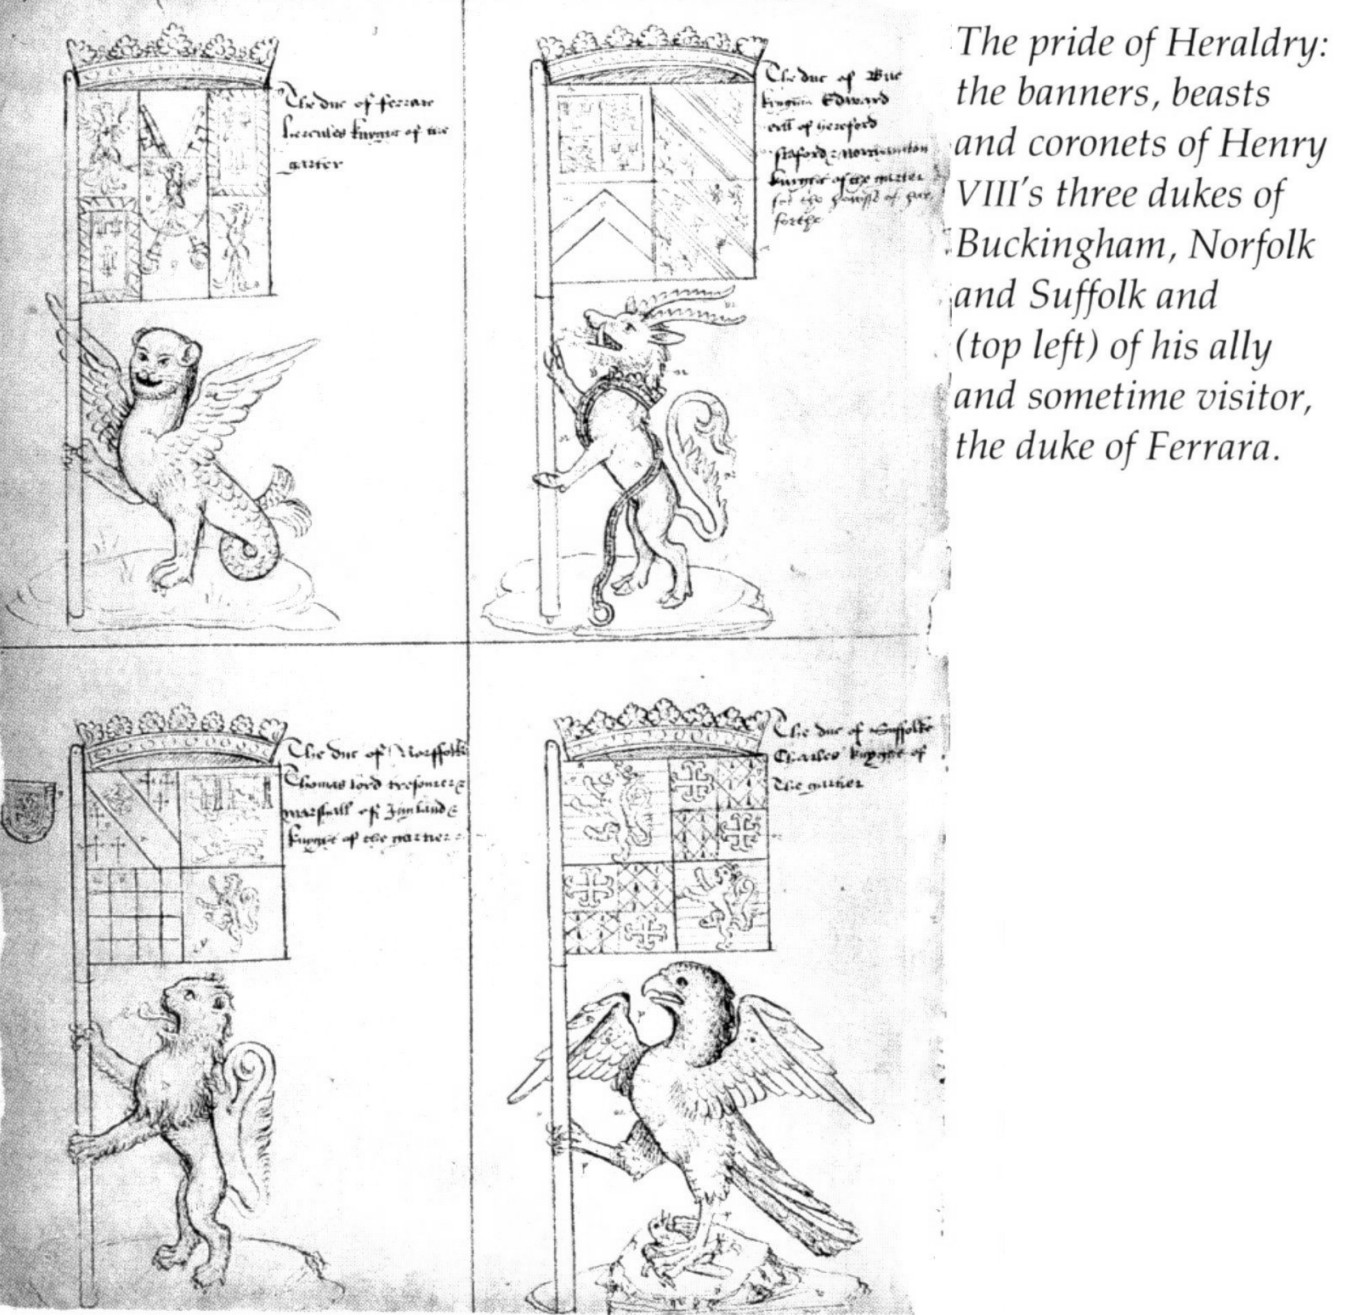 The duc of ferrare
hercules knyght of the
garter
The duc of Buc
kyngham Edward
erll of hereford
staford & northamton
knyght of the garter
The duc of Norffolk
Thomas lord tresourer &
marshall of Ingland &
knyght of the garter
The duc of Suffolke
Charles knyght of
The garter
The pride of Heraldry:
the banners, beasts
and coronets of Henry
VIII's three dukes of
Buckingham, Norfolk
and Suffolk and
(top left) of his ally
and sometime visitor,
the duke of Ferrara.